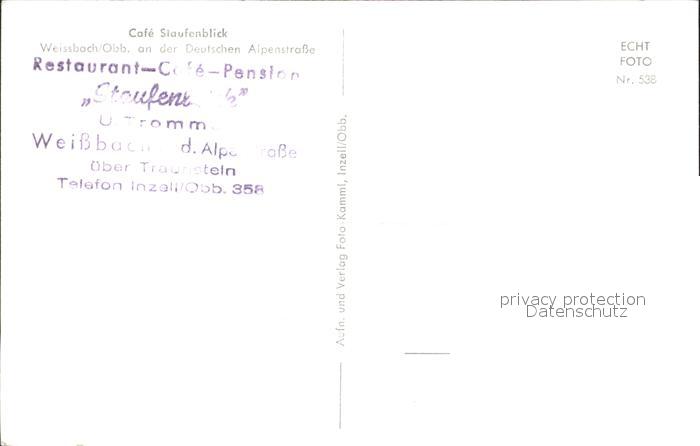 Café Staufenblick
Weissbach/Obb. an der Deutschen Alpenstraße
Restaurant-Café-Pension
„Staufenblick"
Weißbach d. Alpenstraße
über Traunstein
Telefon Inzell/Obb. 358
Aufn. und Verlag Foto-Kamml, Inzell/Obb.
ECHT
FOTO
Nr. 538
privacy protection
Datenschutz